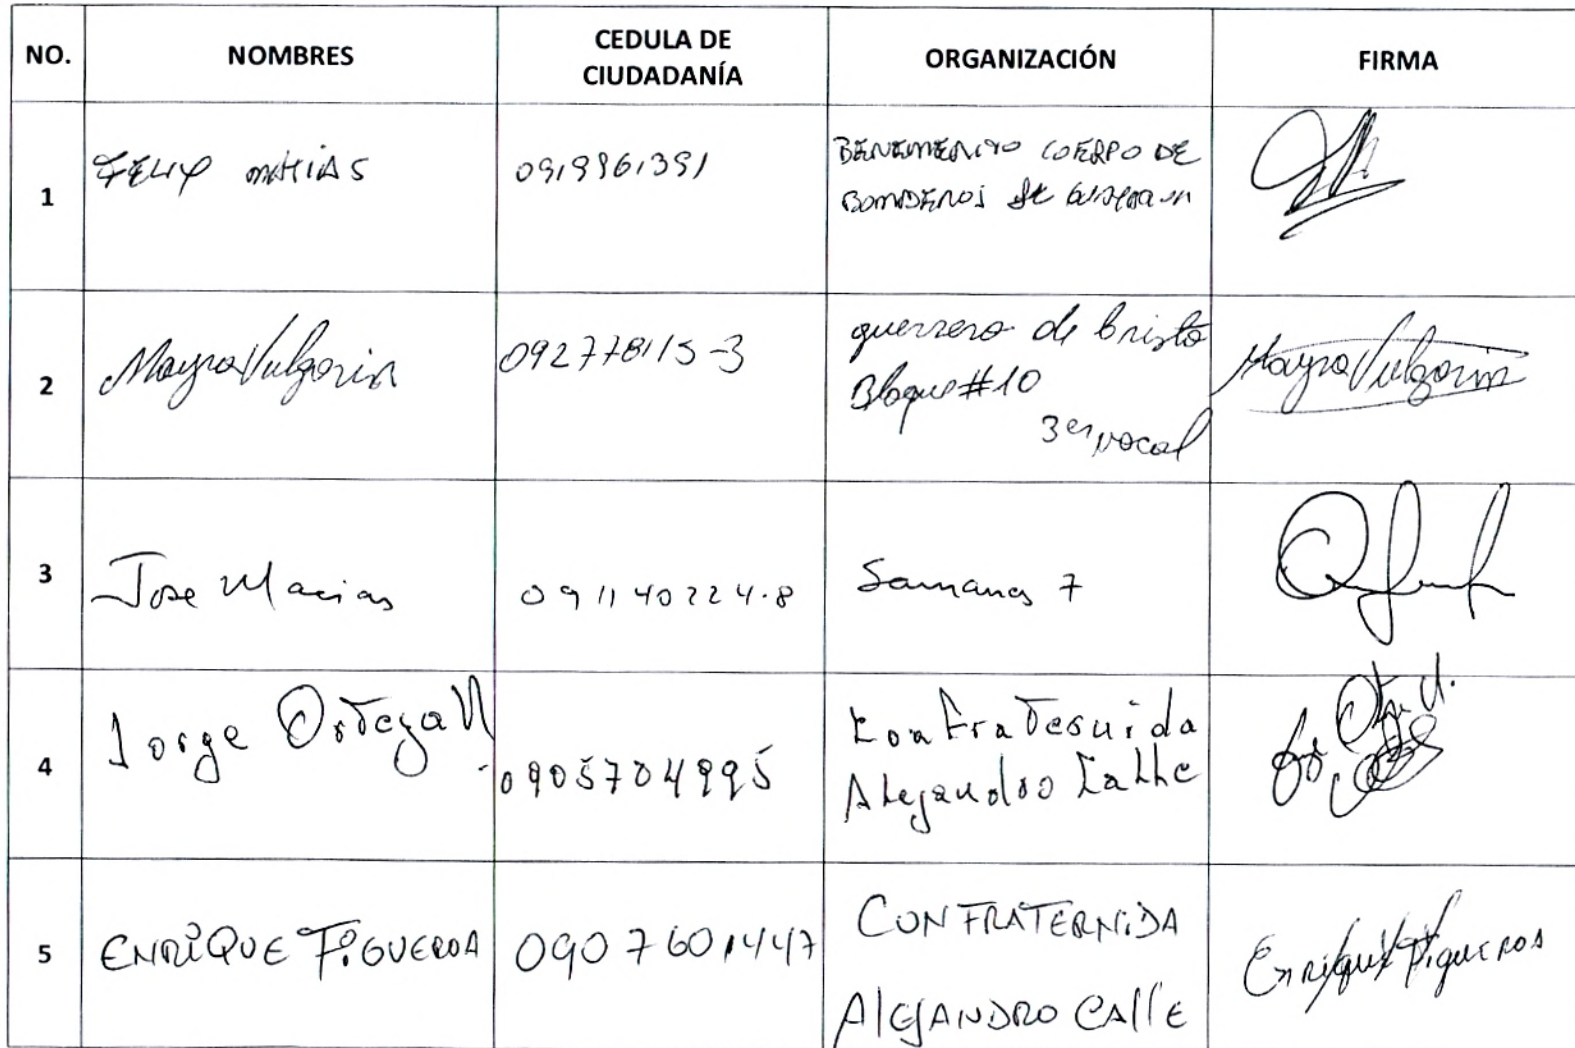 NO. NOMBRES CEDULA DE CIUDADANÍA ORGANIZACIÓN FIRMA
1 FELIX MATIAS 0919961391 BENEMERITO CUERPO DE
BOMBEROS DE GUAYAQUIL
2 Mayra Vulgarin 092778115-3 guerrero de Cristo Mayra Vulgarin
Bloque #10
3er vocal
3 Jose Macias 091140224-8 Samanes 7
4 Jorge Ortega V. 0905704995 Confraternida
Alejandro Calle
5 ENRIQUE FIGUEROA 0907601447 CONFRATERNIDA Enrique Figueroa
AlEJANDRO CAllE